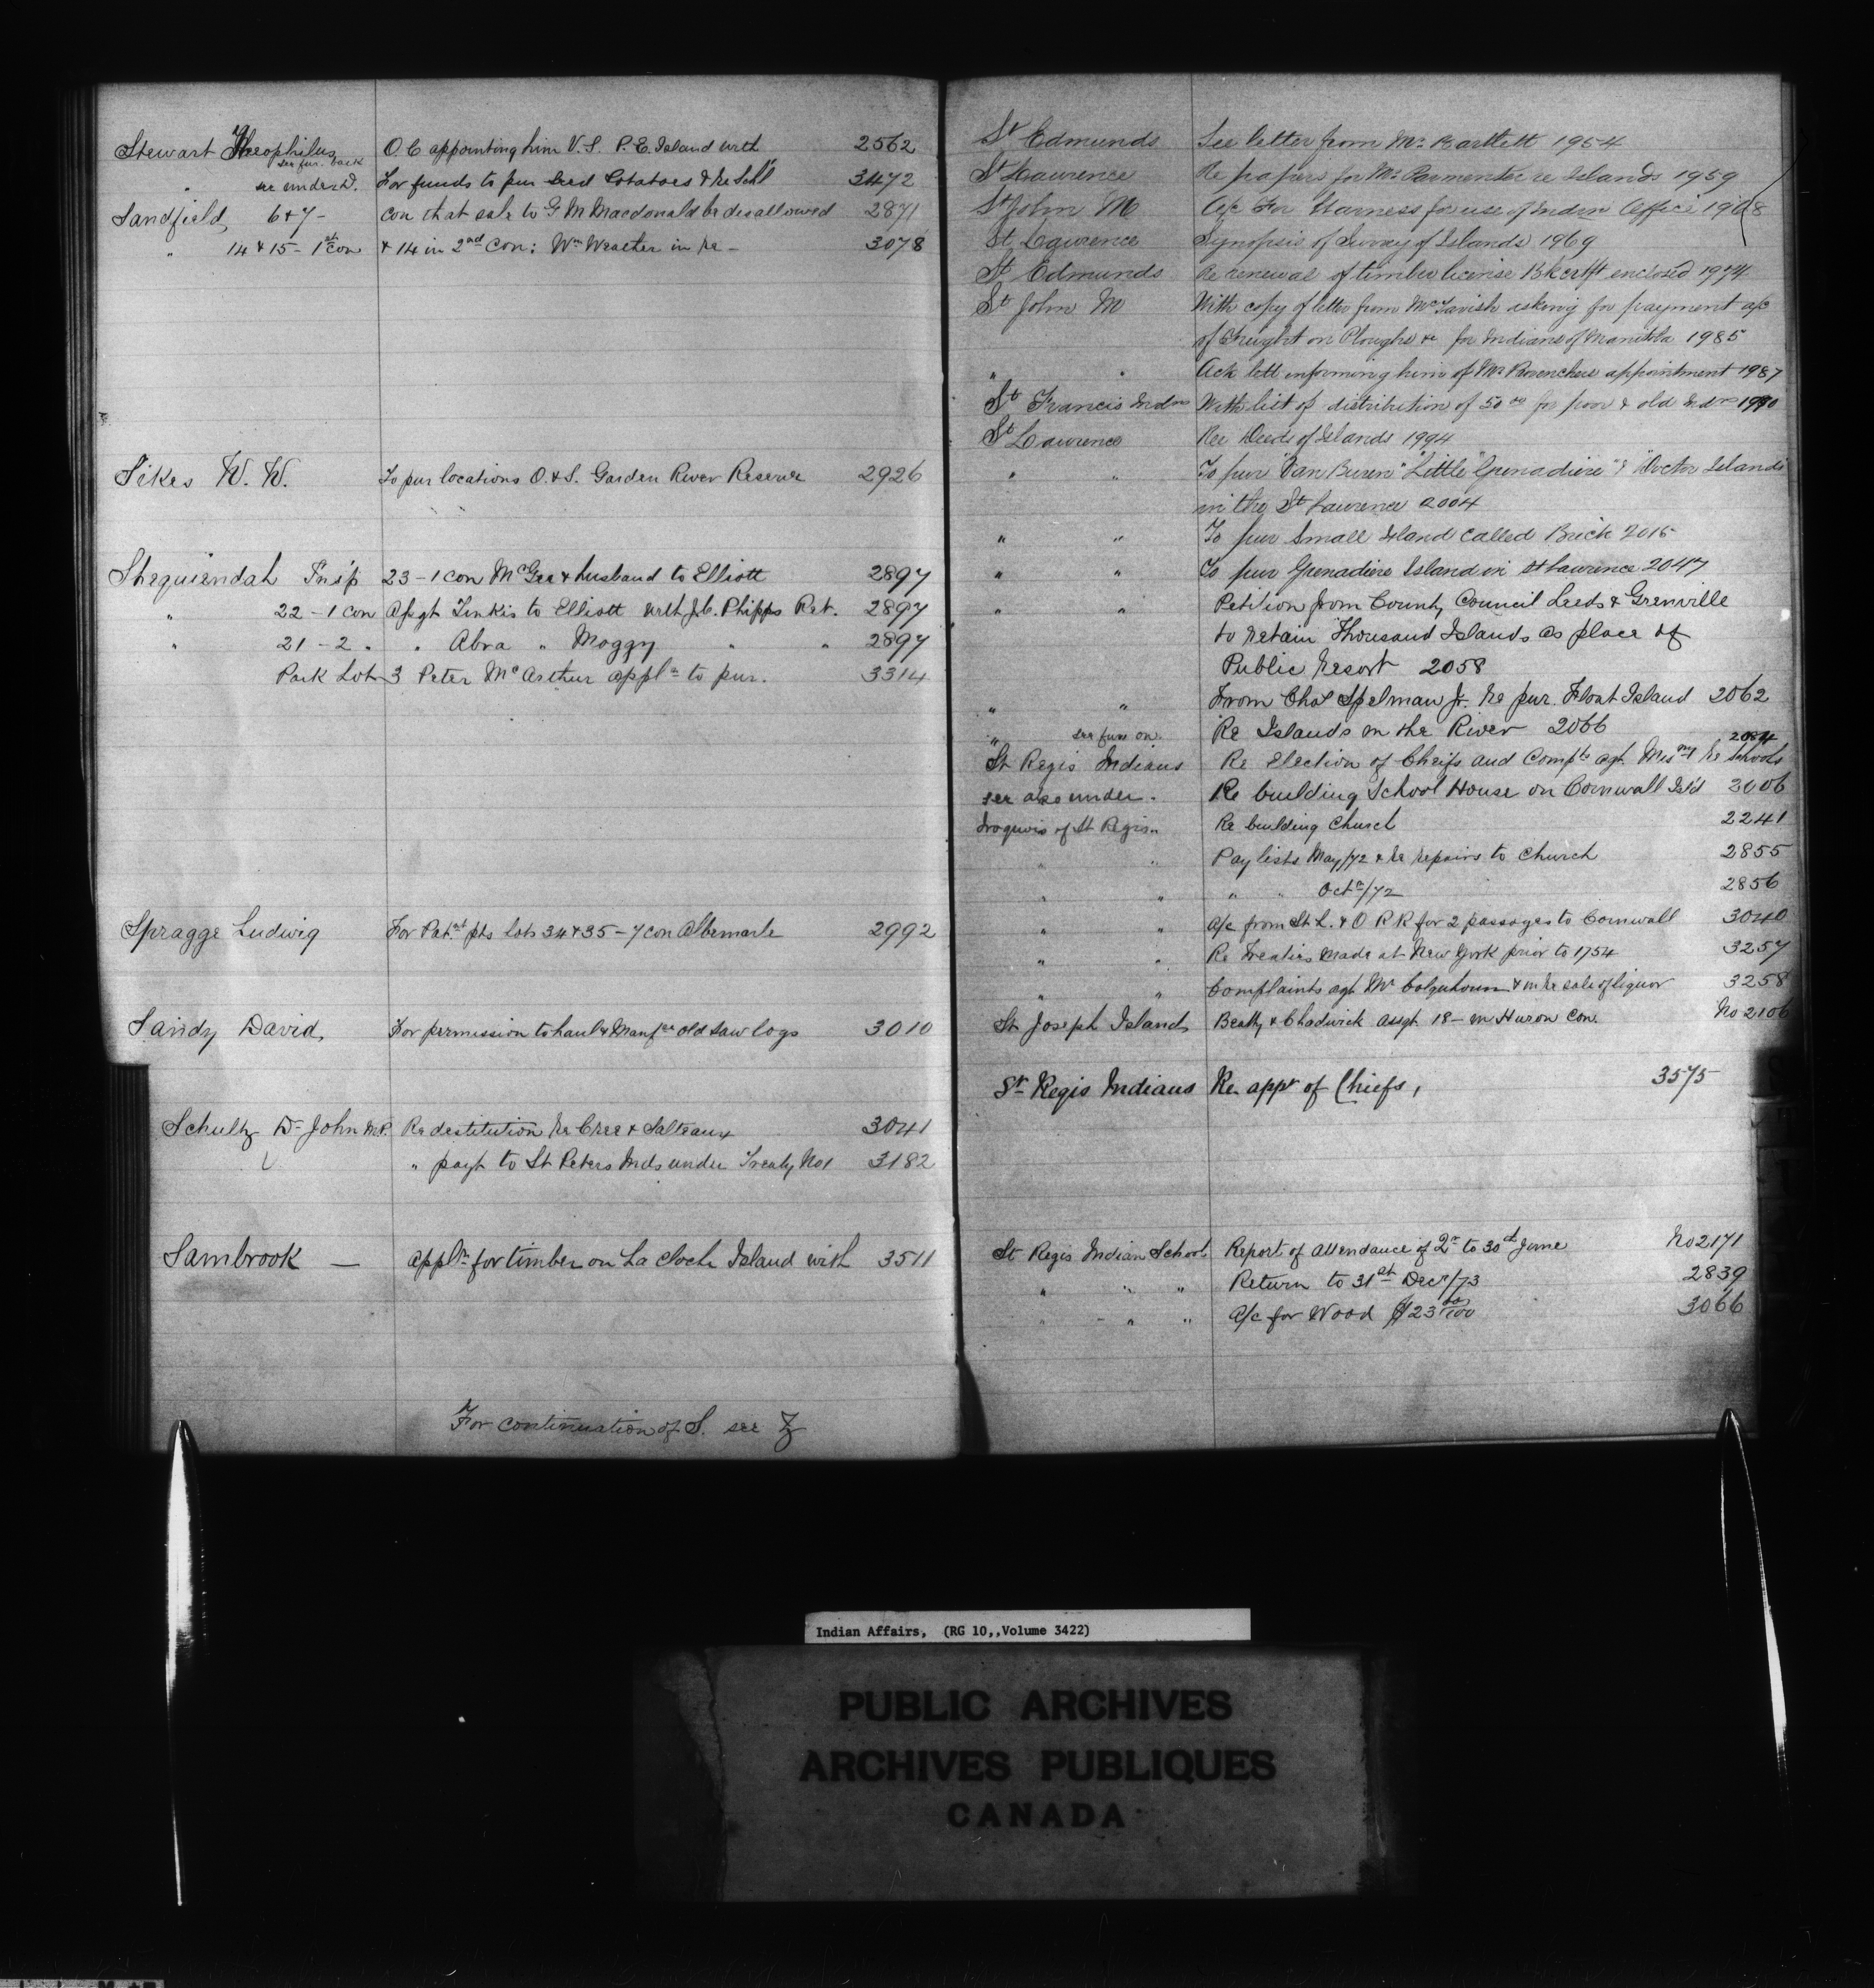 Stewart Theophilus O.C appointing him V.S. P.E. Island with 2562
see fur. back
" see under D. For funds to pur Seed Potatoes & re Schl 3472
Sandfield, 6&7- con that sale to G M Macdonald be disallowed 2871
" 14 & 15- 1st con & 14 in 2nd Con: Wm Wealter in re - 3078
Sikes W. W. To pur locations O. & S. Garden River Reserve 2926
Sheguiendah Tnsp 23-1 con McGee & husband to Elliott 2897
" 22-1 con Assgt Jinkis to Elliott with J.C. Phipps Ret. 2897
" 21-2 " " Abra " Moggy " " 2897
Park Lot 3 Peter McArthur appln to pur. 3314
Spragge Ludwig For Patnt pts lots 34 & 35-7 con Albemarle 2992
Sandy David, For permission to haul & Manfre old saw logs 3010
Schultz Dr John M.P. Re destitution re Cree & Salteaux 3041
" payt to St Peters Inds under Treaty No 1 3182
Sambrook — appln for timber on La Cloche Island with 3511
For continuation of S. see Z
St Edmunds See letter from Mr Bartlett 1954
St Lawrence Re papers for Mr Parmenter re Islands 1959
St John M A/c For Harness for use of Indn Office 1968
St Lawrence Synopsis of Survey of Islands 1969
St Edmunds Re renewal of timber license Bk certft enclosed 1974
St John M With copy of letter from McTavish asking for payment a/c
of Freight on Ploughs &c for Indians of Manitoba 1985
" " Ack lett informing him of Mr Provenchers appointment 1987
St Francis Indns With list of distribution of 50 00 for poor & old Indns 1990
St Lawrence Re Deeds of Islands 1994
" " To pur "Van Buren" "Little Grenadiere" & "Doctor Islands
in the St Lawrence 2004
" " To pur Small Island called Brick 2015
" " To pur Grenadiere Island in St Lawrence 2047
" " Petition from County Council Leeds & Grenville
to retain Thousand Islands as place of
Public Resort 2058
" " From Chas Spelman Jr. re pur. Float Island 2062
" see furr on. Re Islands in the River 2066
2084
St Regis Indians Re Election of Cheifs and Compts agt. Misny re Schools
see also under. Re building School House on Cornwall Isld 2006
Iroquois of St Regis. Re building Church 2241
" " Pay lists May/72 & re repairs to Church 2855
" " " " Octr/72 2856
" " A/c from St L. & O R R for 2 passages to Cornwall 3040
" " Re Treaties made at New York prior to 1754 3257
" " Complaints agt Mr Colquhoun & in re sale of liquor 3258
St Joseph Island, Beatty & Chadwick Assgt 18-in Huron Con. No 2106
St Regis Indians Re. appt of Chiefs, 3575
St Regis Indian School Report of Attendance of Qr to 30th June No 2171
" " " Return to 31st Decr/73 2839
" - " " A/c for Wood $23 00/100 3066
Indian Affairs, (RG 10,,Volume 3422)
PUBLIC ARCHIVES
ARCHIVES PUBLIQUES
CANADA